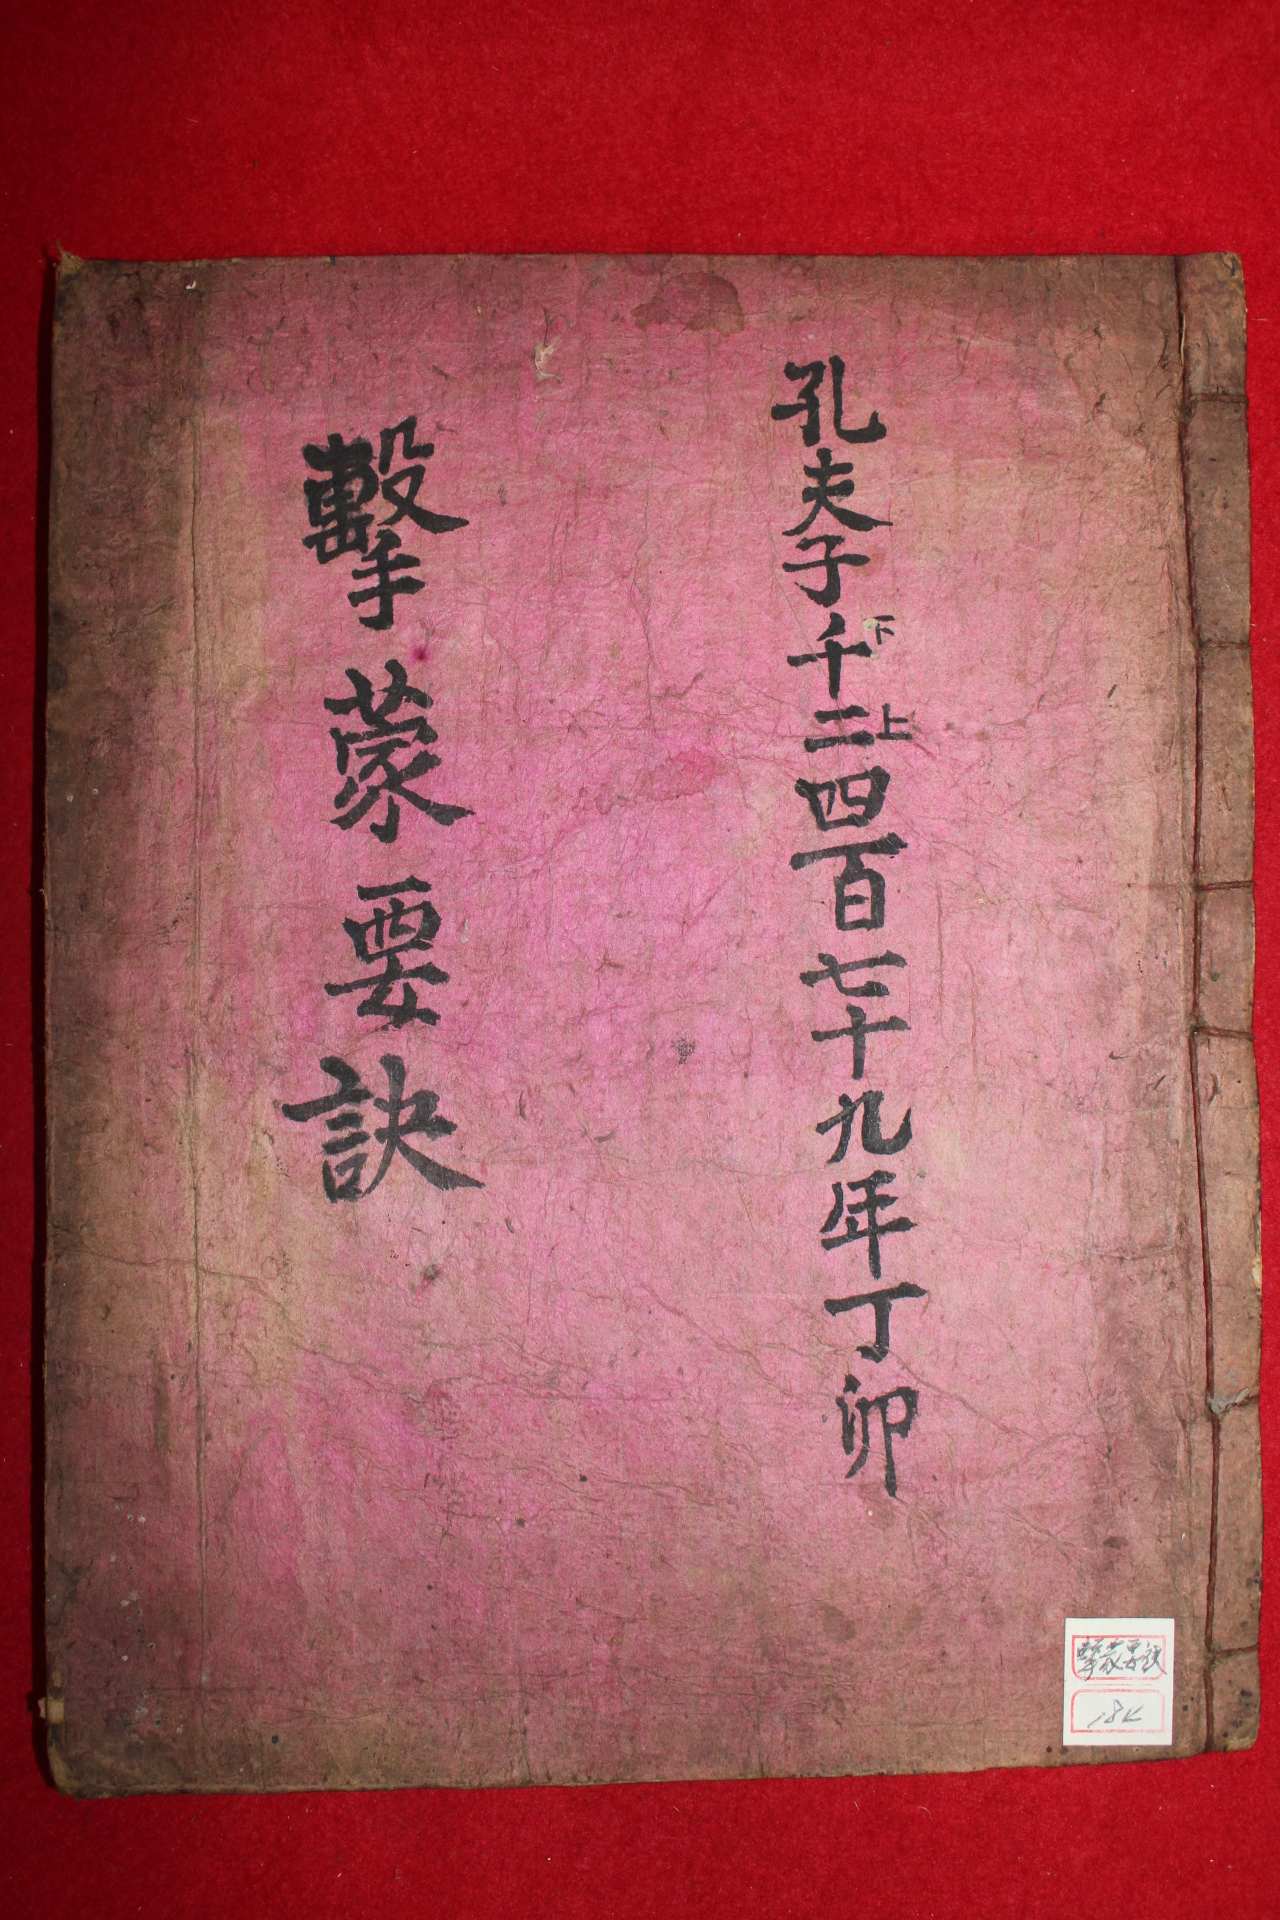 孔夫子千下二上四百七十九年丁卯
擊蒙要訣
擊蒙要訣
18K